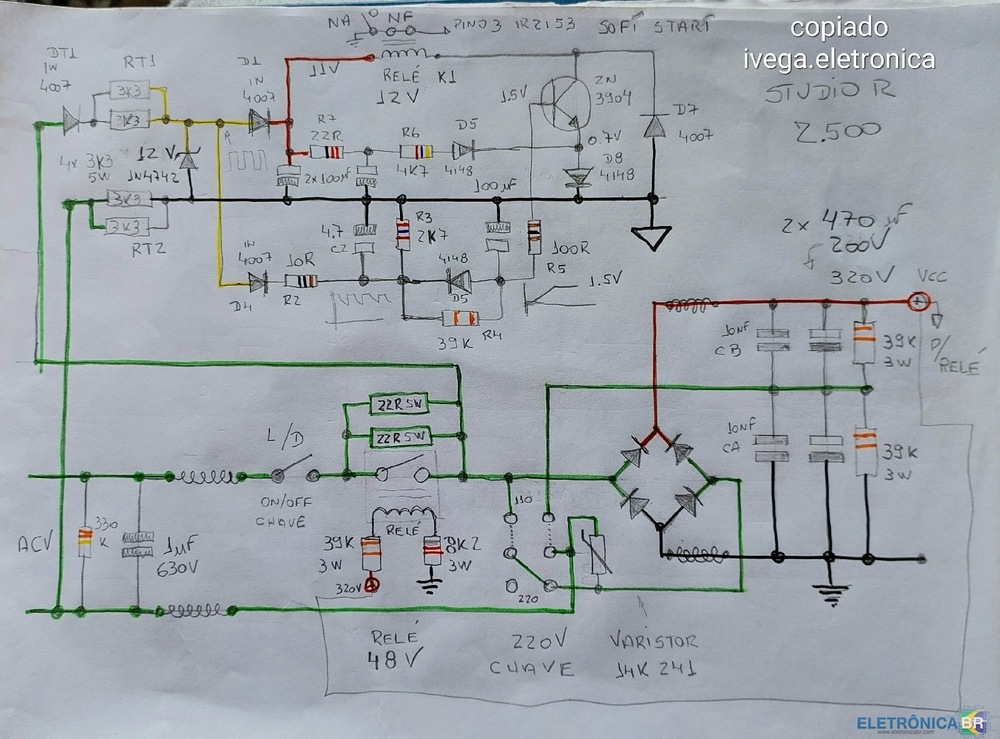 NA NF PINO3 IR2153 SOFÍ START
copiado
ivega.eletronica
STUDIO R
2.500
DT1
1W
4007
RT1
3K3
3K3
D1
1N
4007
11V
RELÉ K1
12V
1.5V
2N
3904
D7
4007
R7
22R
R6
4K7
D5
4148
0.7V
D8
4148
4x 3K3
5W
12V
1N4742
2x100µF
100µF
3K3
3K3
RT2
4.7
C2
R3
2K7
100R
R5
1N
4007
D4
10R
R2
4148
D5
39K R4
1.5V
2x 470µF
200V
320V
VCC
P/
RELÉ
10NF
CB
39K
3W
10NF
CA
39K
3W
22R5W
22R5W
L/D
ON/OFF
CHAVE
110
220
ACV
330
K
1µF
630V
RELÉ
39K
3W
8K2
3W
320V
RELÉ
48V
220V
CHAVE
VARISTOR
14K 241
ELETRÔNICABR
www.eletronicabr.com